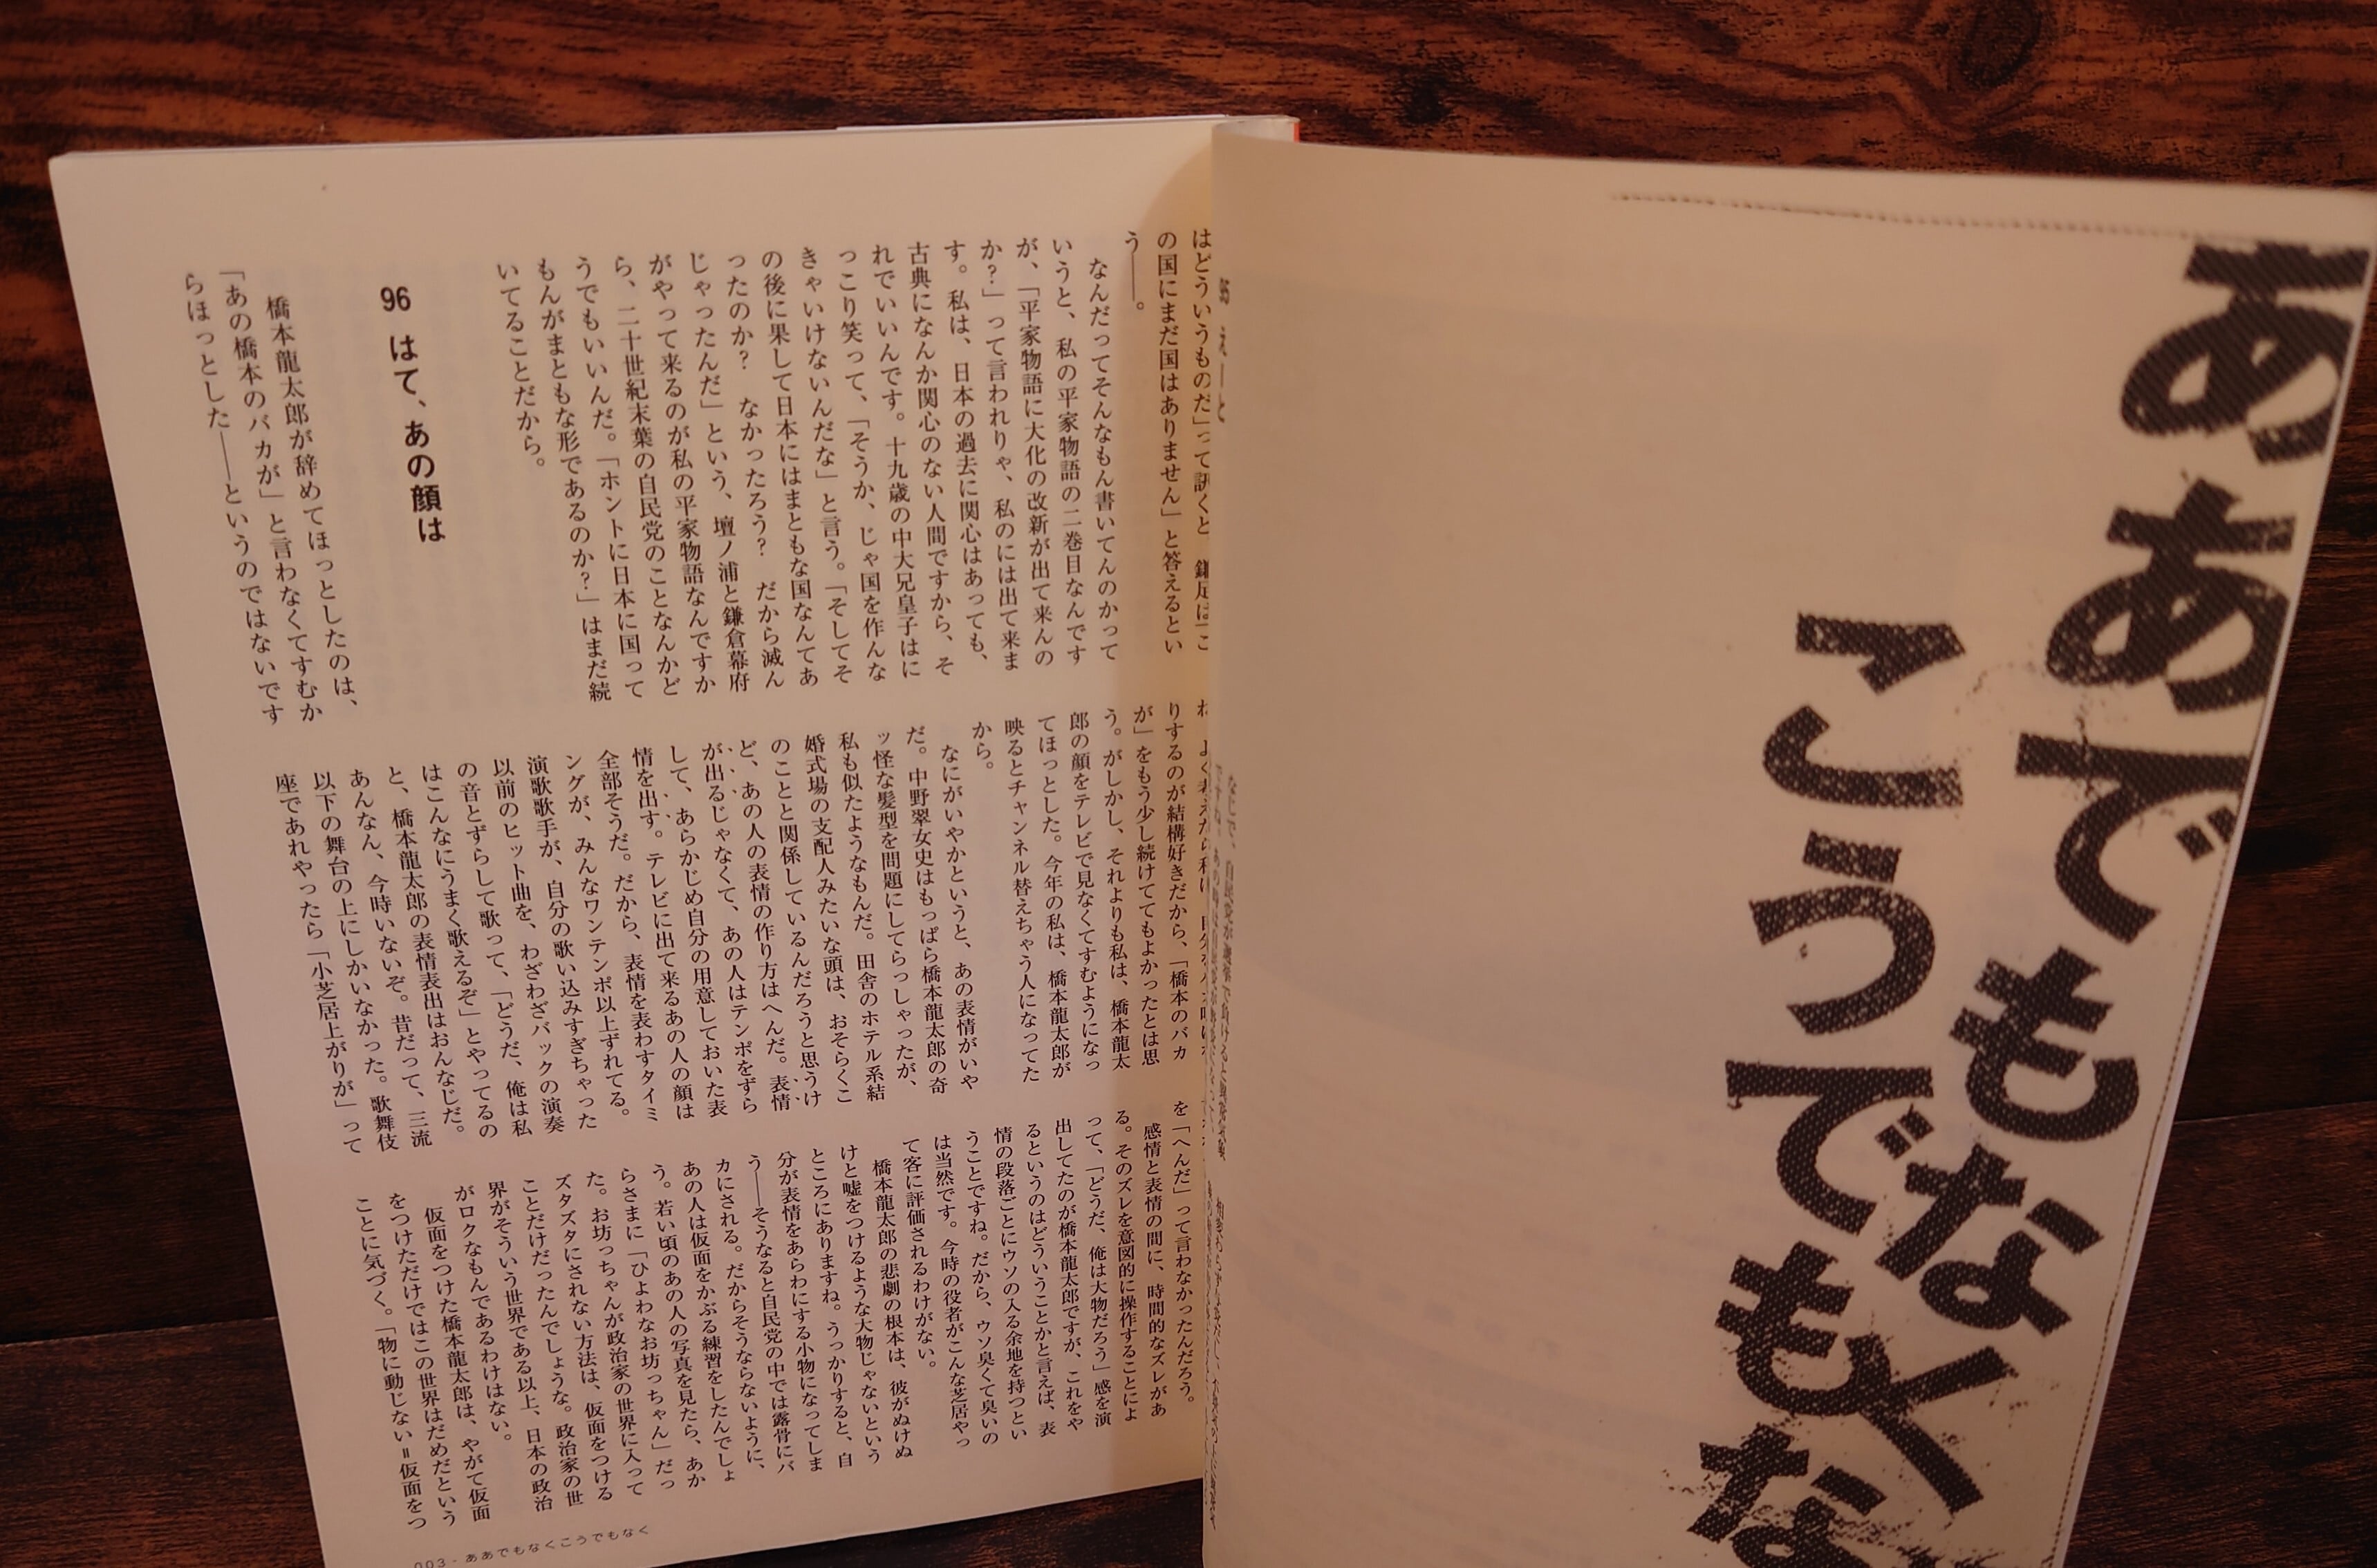 ああでもなく
こうでもな
95 えーと
はどういうものだ」って訊くと、鎌足は「こ
の国にまだ国はありません」と答えるとい
う――。
なんだってそんなもん書いてんのかって
いうと、私の平家物語の二巻目なんです
が、「平家物語に大化の改新が出て来んの
か？」って言われりゃ、私のには出て来ま
す。私は、日本の過去に関心はあっても、
古典になんか関心のない人間ですから、そ
れでいいんです。十九歳の中大兄皇子はに
っこり笑って、「そうか、じゃ国を作んな
きゃいけないんだな」と言う。「そしてそ
の後に果して日本にはまともな国なんてあ
ったのか？　なかったろう？　だから滅ん
じゃったんだ」という、壇ノ浦と鎌倉幕府
がやって来るのが私の平家物語なんですか
ら、二十世紀末葉の自民党のことなんかど
うでもいいんだ。「ホントに日本に国って
もんがまともな形であるのか？」はまだ続
いてることだから。
96 はて、あの顔は
橋本龍太郎が辞めてほっとしたのは、
「あの橋本のバカが」と言わなくてすむか
らほっとした――というのではないです
りするのが結構好きだから、「橋本のバカ
が」をもう少し続けててもよかったとは思
う。がしかし、それよりも私は、橋本龍太
郎の顔をテレビで見なくてすむようになっ
てほっとした。今年の私は、橋本龍太郎が
映るとチャンネル替えちゃう人になってた
から。
なにがいやかというと、あの表情がいや
だ。中野翠女史はもっぱら橋本龍太郎の奇
ッ怪な髪型を問題にしてらっしゃったが、
私も似たようなもんだ。田舎のホテル系結
婚式場の支配人みたいな頭は、おそらくこ
のことと関係しているんだろうと思うけ
ど、あの人の表情の作り方はへんだ。表情
が出るじゃなくて、あの人はテンポをずら
して、あらかじめ自分の用意しておいた表
情を出す。テレビに出て来るあの人の顔は
全部そうだ。だから、表情を表わすタイミ
ングが、みんなワンテンポ以上ずれてる。
演歌歌手が、自分の歌い込みすぎちゃった
以前のヒット曲を、わざわざバックの演奏
の音とずらして歌って、「どうだ、俺は私
はこんなにうまく歌えるぞ」とやってるの
と、橋本龍太郎の表情表出はおんなじだ。
あんなん、今時いないぞ。昔だって、三流
以下の舞台の上にしかいなかった。歌舞伎
座であれやったら「小芝居上がりが」って
を「へんだ」って言わなかったんだろう。
感情と表情の間に、時間的なズレがあ
る。そのズレを意図的に操作することによ
って、「どうだ、俺は大物だろう」感を演
出してたのが橋本龍太郎ですが、これをや
るというのはどういうことかと言えば、表
情の段落ごとにウソの入る余地を持つとい
うことですね。だから、ウソ臭くて臭いの
は当然です。今時の役者がこんな芝居やっ
て客に評価されるわけがない。
橋本龍太郎の悲劇の根本は、彼がぬけぬ
けと嘘をつけるような大物じゃないという
ところにありますね。うっかりすると、自
分が表情をあらわにする小物になってしま
う――そうなると自民党の中では露骨にバ
カにされる。だからそうならないように、
あの人は仮面をかぶる練習をしたんでしょ
う。若い頃のあの人の写真を見たら、あか
らさまに「ひよわなお坊っちゃん」だっ
た。お坊っちゃんが政治家の世界に入って
ズタズタにされない方法は、仮面をつける
ことだけだったんでしょうな。政治家の世
界がそういう世界である以上、日本の政治
がロクなもんであるわけはない。
仮面をつけた橋本龍太郎は、やがて仮面
をつけただけではこの世界はだめだという
ことに気づく。「物に動じない＝仮面をつ
003 - ああでもなくこうでもなく